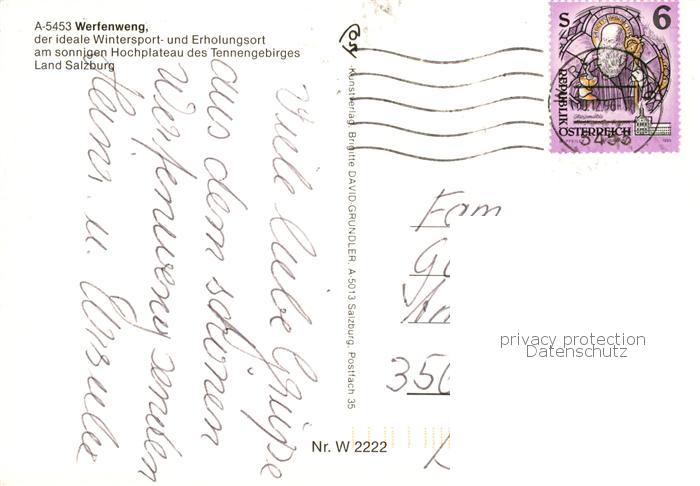 A-5453 Werfenweng,
der ideale Wintersport- und Erholungsort
am sonnigen Hochplateau des Tennengebirges
Land Salzburg
Viele liebe Grüße
aus dem schönen
Werfenweng senden
Heinr. u. Ursula
Kunstverlag, Brigitte DAVID-GRÜNDLER, A-5013 Salzburg, Postfach 35
Nr. W 2222
S 6
REPUBLIK
ÖSTERREICH
5453
Fam
350
privacy protection
Datenschutz